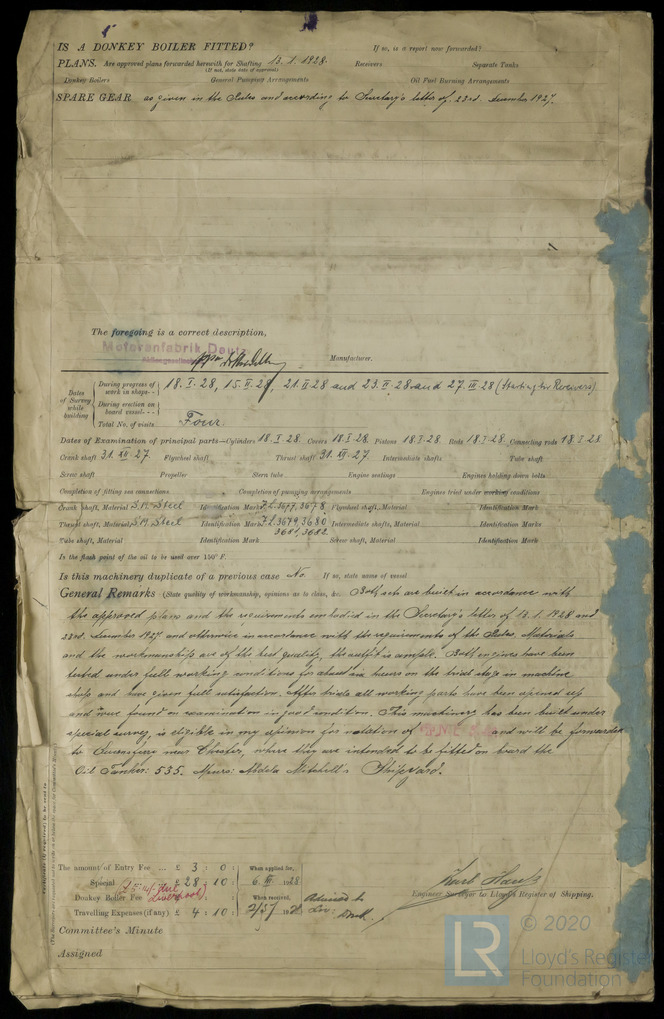 IS A DONKEY BOILER FITTED? If so, is a report now forwarded?
PLANS. Are approved plans forwarded herewith for Shafting 13.1.1928 Receivers Separate Tanks
(If not, state date of approval)
Donkey Boilers General Pumping Arrangements Oil Fuel Burning Arrangements
SPARE GEAR as given in the Rules and according to Secretary's letter of 23rd December 1927.
The foregoing is a correct description,
Motorenfabrik Deutz
Aktiengesellschaft
Manufacturer.
Dates of Survey while building
During progress of work in shops-- 18.I.28, 15.II.28, 21.II.28 and 23.II.28 and 27.III.28 (Starting Air Receivers)
During erection on board vessel---
Total No. of visits Four.
Dates of Examination of principal parts—Cylinders 18.I.28. Covers 18.I.28 Pistons 18.I.28 Rods 18.I.28 Connecting rods 18.I.28
Crank shaft 31.XII.27. Flywheel shaft Thrust shaft 31.XII.27 Intermediate shafts Tube shaft
Screw shaft Propeller Stern tube Engine seatings Engines holding down bolts
Completion of fitting sea connections Completion of pumping arrangements Engines tried under working conditions
Crank shaft, Material S.M. Steel Identification Mark F.L.3677, 3678 Flywheel shaft, Material Identification Mark
Thrust shaft, Material S.M. Steel Identification Mark F.L.3679, 3680 Intermediate shafts, Material Identification Marks
3681, 3682
Tube shaft, Material Identification Mark Screw shaft, Material Identification Mark
Is the flash point of the oil to be used over 150° F.
Is this machinery duplicate of a previous case No. If so, state name of vessel
General Remarks (State quality of workmanship, opinions as to class, &c. Both sets are built in accordance with
the approved plans and the requirements embodied in the Secretary's letter of 13.1.1928 and
23rd. December 1927 and otherwise in accordance with the requirements of the Rules. Materials
and the workmanship are of the best quality, the outfit is ample. Both engines have been
tested under full working conditions for about six hours on the trial stage in machine
shop and have given full satisfaction. After trials all working parts have been opened up
and were found on examination in good condition. This machinery has been built under
special survey, is eligible in my opinion for notation of and will be forwarded
to Queensferry near Chester, where they are intended to be fitted on board the
Oil Tanker: 535. Messrs: Abdela Mitchell's Shipyard.
The amount of Entry Fee ... £ 3 : 0 : When applied for,
Special £ 28 : 10 : 6.III.1928
Donkey Boiler Fee Liverpool When received,
Travelling Expenses (if any) £ 4 : 10 : 2/5/ 1928
Advised to
Liv:
Engineer Surveyor to Lloyd's Register of Shipping.
Committee's Minute
Assigned
© 2020
LR Lloyd's Register
Foundation